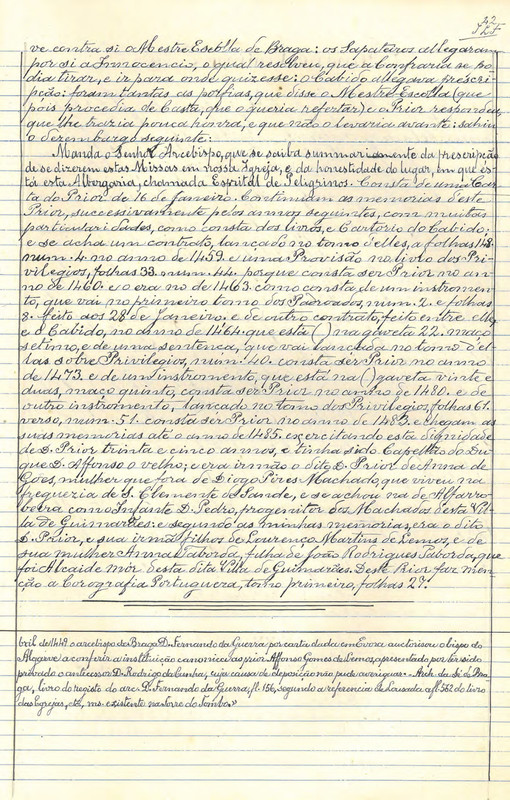 ve contra si o Mestre Escólla de Braga: os Sapatáros allegaram
por si a Innocencio, o qual resolveu, que a Confraria se po
dia tirar, e ir para onde quizesse: o Cabido allegava prescri-
pção: foram tantas as porfias, que disse o Mestre Escólla (que
pois procedia de Casta, que o queria reportar) e o Prior respondeu,
que lhe traria pouca honra, e que não o levaria avante: sahiu
o dezembargo seguinte:
Manda o Senhor Arcebispo, que se saiba summariamente da prescripção
de se dizerem estas Missas em vossa Igreja, e da honestidade do lugar, em que es-
tá esta Albergaria, chamada Esprital de Peligrinos. Consta de uma Car-
ta do Prior de 16 de Janeiro. Continuam as memorias d'este
Prior, successivamente pelos annos seguintes, com muitas
particularidades, como consta dos livros, e Cartorio do Cabido;
e se acha um contrato, lançado no tomo d'elles, a folhas 148.
num. 4. no anno de 1459. e uma Provisão no livro dos Pri-
vilegios, folhas 33. num. 44. porque consta ser Prior no an-
no de 1460. e o era no de 1463. como consta, de um instrumen-
to, que vai no primeiro tomo dos Padroados, num. 2. e folhas
8. feito aos 28 de Janeiro. e de outro contrato, feito entre elle,
e o Cabido, no anno de 1464. que está ( ) na gaveta 22. maço
setimo, e de uma sentença, que vai lançada no tomo d'el-
las sobre Privilegios, núm. 40. consta ser Prior no anno
de 1473. e de um instromento, que está na ( ) gaveta vinte e
duas, maço quinto, consta ser Prior no anno de 1480. e de
outro instromento, lançado no tomo dos Privilegios, folhas 61.
verso, num. 51. consta ser Prior no anno de 1483. e chegam as
suas memorias até o anno de 1485. exercitando esta dignidade
de D. Prior trinta e cinco annos, e tinha sido Capellão do Du
que D. Affonso o velho; e era irmão o dito D. Prior de Anna de
Góes, mulher que fora de Diogo Pires Machado, que viveu na
freguezia de S. Clemente de Sande, e se achou na de Alfarro-
beira com o Infante D. Pedro, progenitor dos Machados desta Vil-
la de Guimarães: e segundo as minhas memorias, era o dito
D. Prior, e sua irmã filhos de Lourenço Martins de Lemos, e de
sua mulher Anna Taborda, filha de João Rodrigues Taborda, que
foi Alcaide mór desta dita Villa de Guimarães. Deste Prior faz men-
ção a Corografia Portugueza, tomo primeiro, folhas 27.
bril de 1449 o arcebispo de Braga D. Fernando da Guerra, por carta dada em Evora auctorisou o bispo do
Algarve a conferir a instituição canonica ao prior Affonso Gomes de Lemos, apresentado por ter sido
privado o antecessor D. Rodrigo da Cunha, cuja causa de deposição não pude averiguar. Arch. da Sé de Bra-
ga, livro do registo do arc.º D. Fernando da Guerra, fl. 156, segundo a referencia de Lousada a fl. 562 do livro
das Egrejas, etc., ms. existente na Torre do Tombo.»